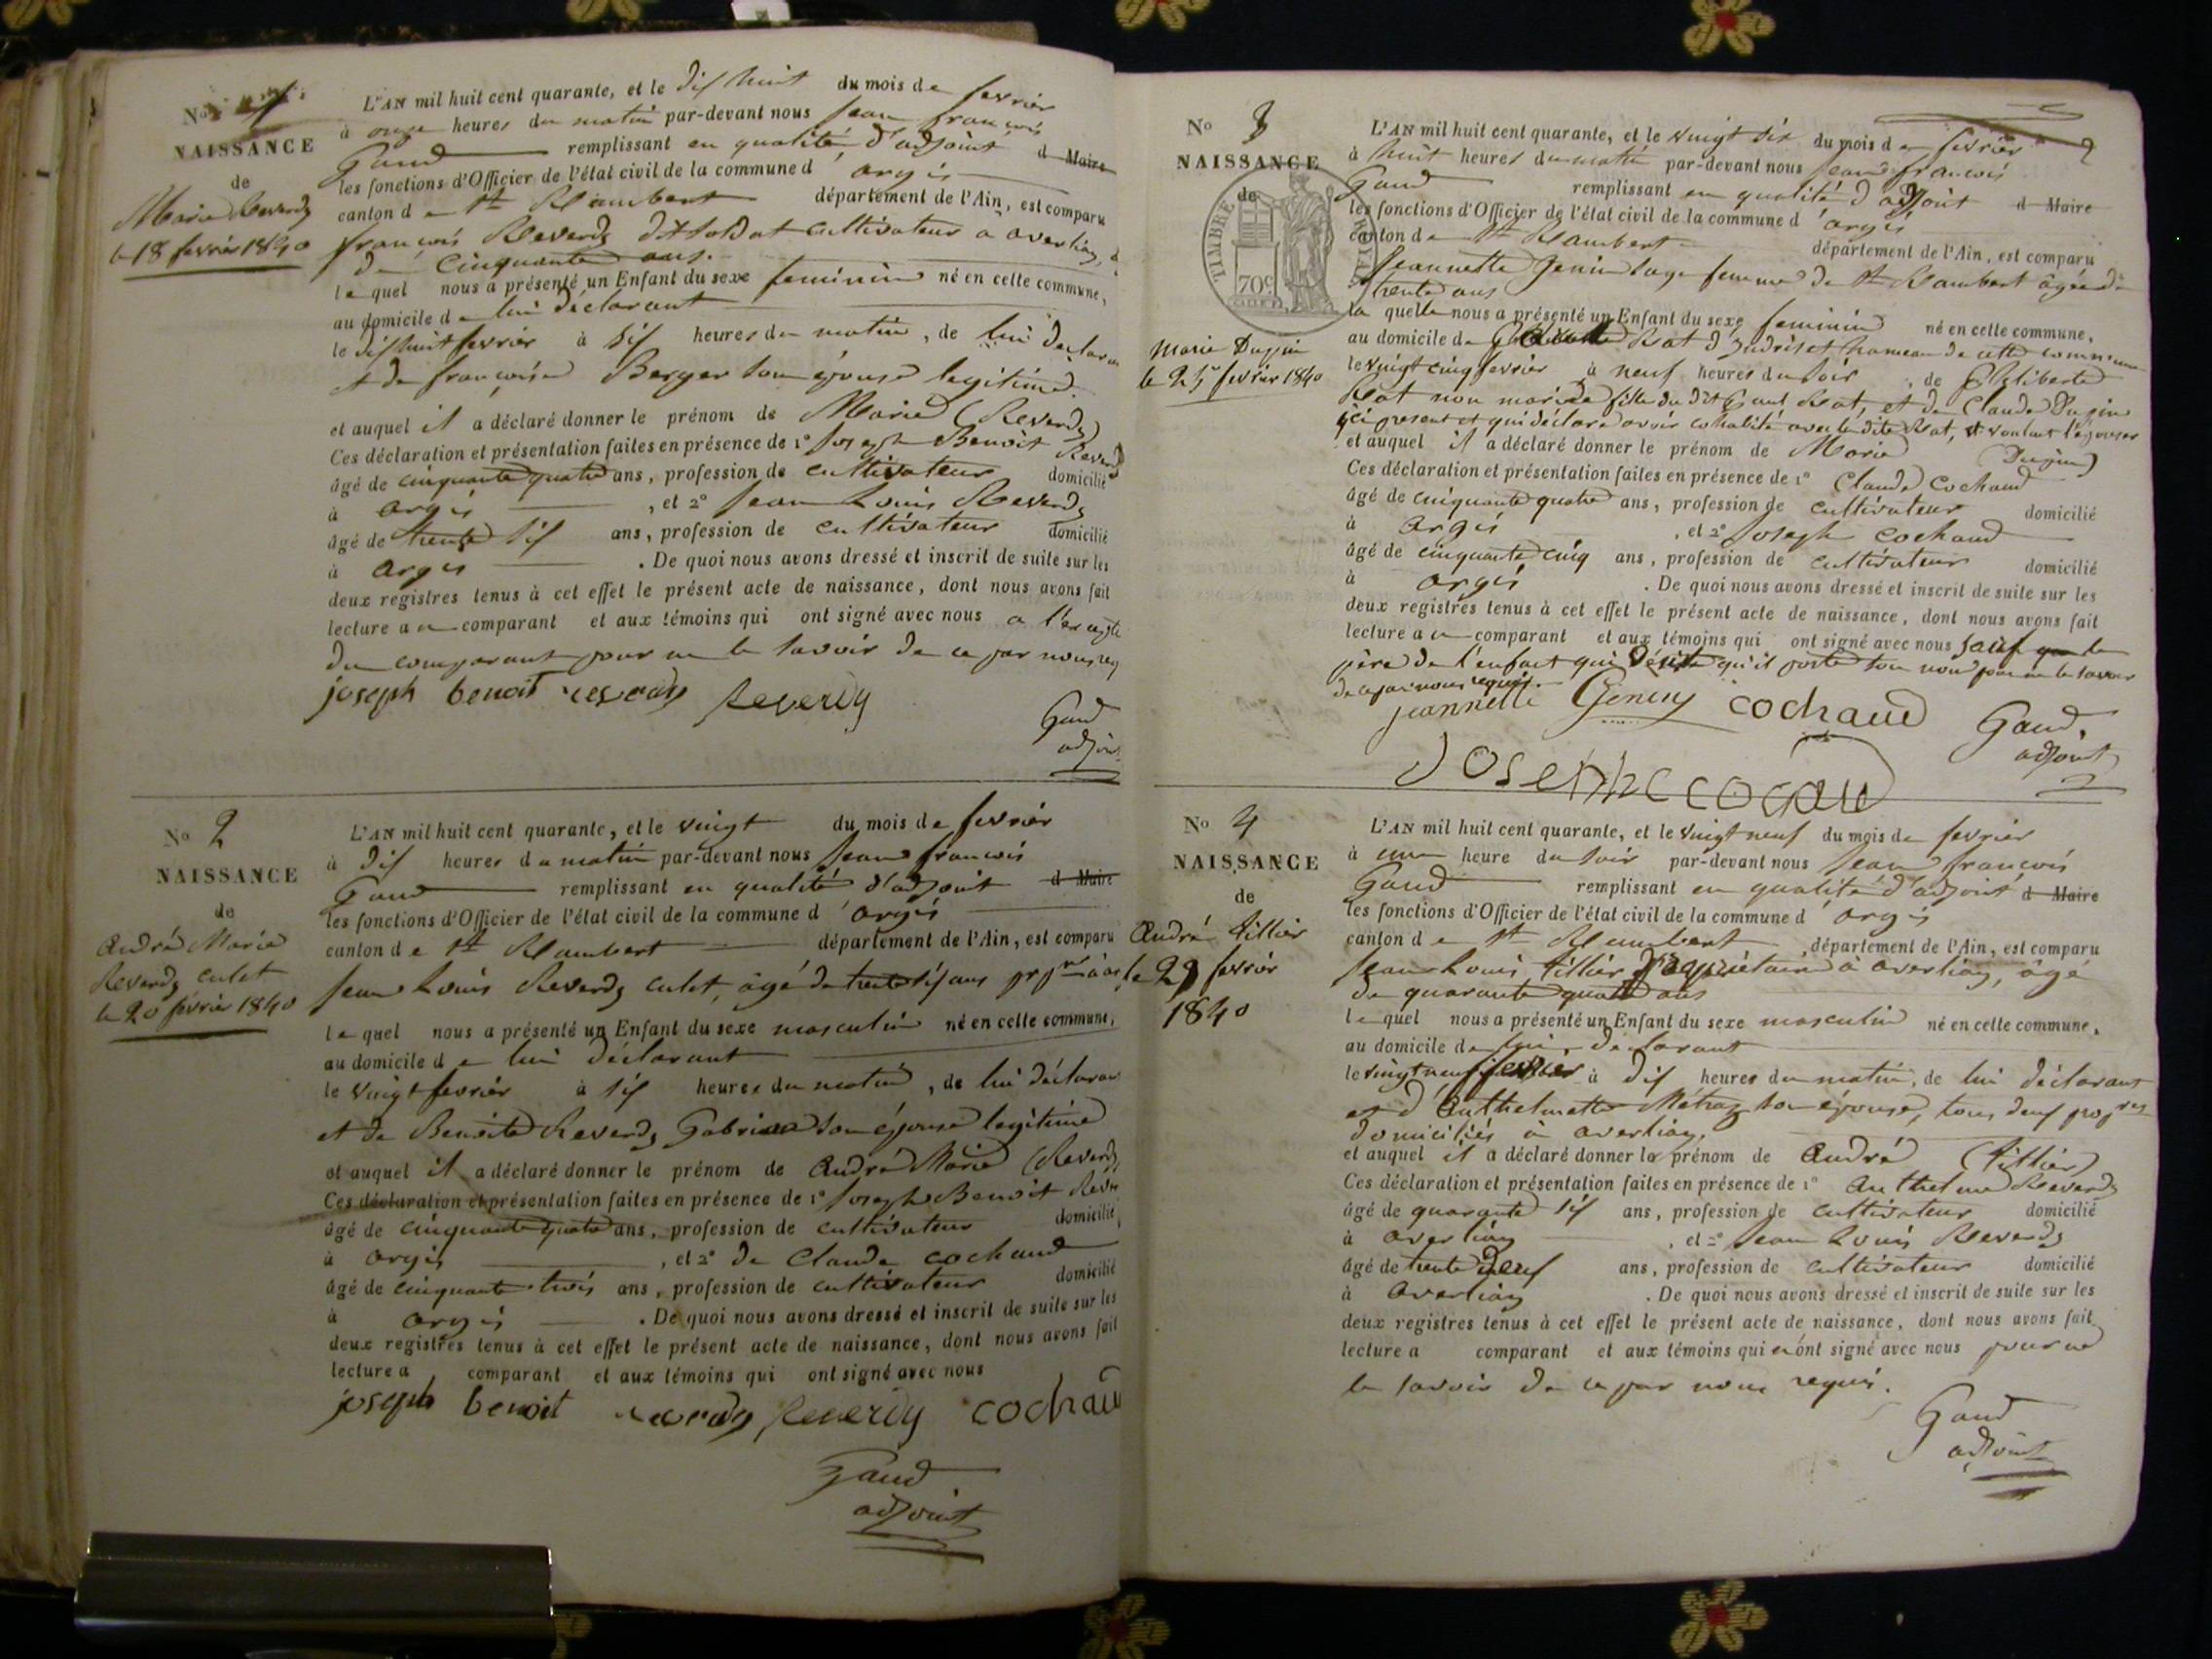 No 1
NAISSANCE
de
Marie Reverdy
le 18 fevrier 1840
L'AN mil huit cent quarante, et le dix huit du mois de fevrier
à onze heures du matin par-devant nous Jean françois
Gaud remplissant en qualité d'adjoint d Maire
les fonctions d'Officier de l'état civil de la commune d'argis
canton de St Rambert département de l'Ain, est comparu
françois Reverdy dit soldat cultivateur a averliaz,
de cinquante ans.
lequel nous a présenté un Enfant du sexe feminin né en cette commune,
au domicile de lui déclarant
le dix huit fevrier à six heures du matin, de lui declarant
et de françoise Berger son épouse legitime.
et auquel il a déclaré donner le prénom de Marie (Reverdy)
Ces déclaration et présentation faites en présence de 1° Joseph Benoit Reverdy
âgé de cinquante quatre ans, profession de cultivateur domicilié
à argis, et 2° Jean Louis Reverdy
âgé de trente six ans, profession de cultivateur domicilié
à argis. De quoi nous avons dressé et inscrit de suite sur les
deux registres tenus à cet effet le présent acte de naissance, dont nous avons fait
lecture au comparant et aux témoins qui ont signé avec nous a l'exception
du comparant pour ne le savoir de ce par nous req
joseph benoit reverdy Reverdy
Gaud
adjoint
No 2
NAISSANCE
de
André Marie
Reverdy culet
le 20 fevrier 1840
L'AN mil huit cent quarante, et le vingt du mois de fevrier
à dix heures du matin par-devant nous Jean françois
Gaud remplissant en qualité d'adjoint d Maire
les fonctions d'Officier de l'état civil de la commune d'argis
canton de St Rambert département de l'Ain, est comparu
Jean Louis Reverdy culet, agé de trente six ans
lequel nous a présenté un Enfant du sexe masculin né en cette commune,
au domicile de lui déclarant
le vingt fevrier à six heures du matin, de lui déclarant
et de Benoite Reverdy son épouse legitime
et auquel il a déclaré donner le prénom de André Marie (Reverdy
Ces déclaration et présentation faites en présence de 1° Joseph Benoit Reve
âgé de cinquante quatre ans, profession de cultivateur domicilié
à argis, et 2° de Claude cochaud
âgé de cinquante trois ans, profession de cultivateur domicilié
à argis. De quoi nous avons dressé et inscrit de suite sur les
deux registres tenus à cet effet le présent acte de naissance, dont nous avons fait
lecture a comparant et aux témoins qui ont signé avec nous
joseph benoit reverdy Reverdy cochaud
Gaud
adjoint
2
No 3
NAISSANCE
de
TIMBRE
70c
Marie Dupin
le 25 fevrier 1840
L'AN mil huit cent quarante, et le vingt six du mois de fevrier
à huit heures du matin par-devant nous Jean françois
Gaud remplissant en qualité d'adjoint d Maire
les fonctions d'Officier de l'état civil de la commune d'argis
canton de St Rambert département de l'Ain, est comparu
Jeannette Genin sage femme de St Rambert âgée de
trente ans
laquelle nous a présenté un Enfant du sexe feminin né en cette commune,
au domicile de Rat hameau de cette commune
le vingt cinq fevrier à neuf heures du soir, de Philiberte
Rat non mariée fille du dit Rat, et de Claude Dupin
ici present et qui déclare avoir cohabité avec la dite Rat, et voulant l'épouser
et auquel il a déclaré donner le prénom de Marie (Dupin)
Ces déclaration et présentation faites en présence de 1° Claude Cochaud
âgé de cinquante quatre ans, profession de cultivateur domicilié
à argis, et 2° Joseph cochaud
âgé de cinquante cinq ans, profession de cultivateur domicilié
à argis. De quoi nous avons dressé et inscrit de suite sur les
deux registres tenus à cet effet le présent acte de naissance, dont nous avons fait
lecture au comparant et aux témoins qui ont signé avec nous sauf le
père de l'enfant qui désire qu'il porte son nom pour ne le savoir
de ce par nous requis.
jeannette Genin cochaud Gaud
adjoint
Joseph cocaud
No 4
NAISSANCE
de
André tillier
le 29 fevrier
1840
L'AN mil huit cent quarante, et le vingt neuf du mois de fevrier
à une heure du soir par-devant nous Jean françois
Gaud remplissant en qualité d'adjoint d Maire
les fonctions d'Officier de l'état civil de la commune d'argis
canton de St Rambert, département de l'Ain, est comparu
Jean Louis tillier propriétaire à averliaz, âgé
de quarante quatre ans
lequel nous a présenté un Enfant du sexe masculin né en cette commune,
au domicile de lui déclarant
le vingt neuf fevrier à dix heures du matin, de lui déclarant
et d'Anthelmette Metraz son épouse, tous deux propres
domiciliés à averliaz.
et auquel il a déclaré donner le prénom de André (tillier)
Ces déclaration et présentation faites en présence de 1° Anthelme Reverdy
âgé de quarante six ans, profession de cultivateur domicilié
à averliaz, et 2° Jean Louis Reverdy
âgé de trente neuf ans, profession de cultivateur domicilié
à averliaz. De quoi nous avons dressé et inscrit de suite sur les
deux registres tenus à cet effet le présent acte de naissance, dont nous avons fait
lecture a comparant et aux témoins qui n'ont signé avec nous pour ne
le savoir de ce par nous requis.
Gaud
adjoint